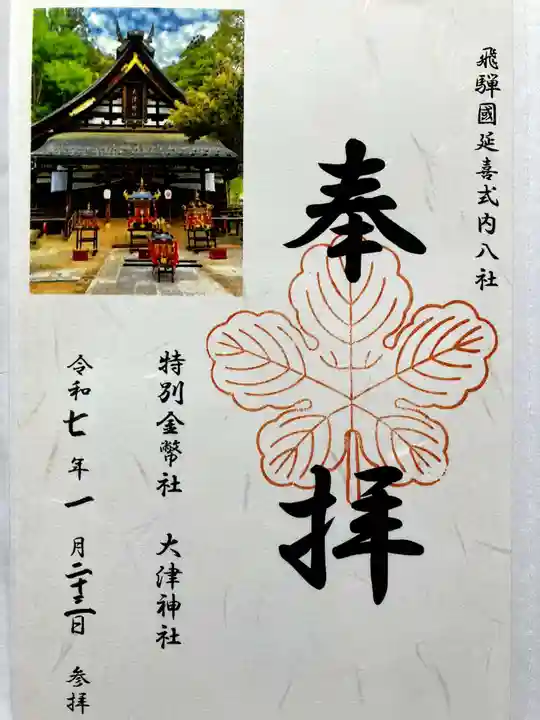 飛騨國延喜式内八社
奉拝
特別金幣社 大津神社
令和七年一月二十二日 参拝
大津神社